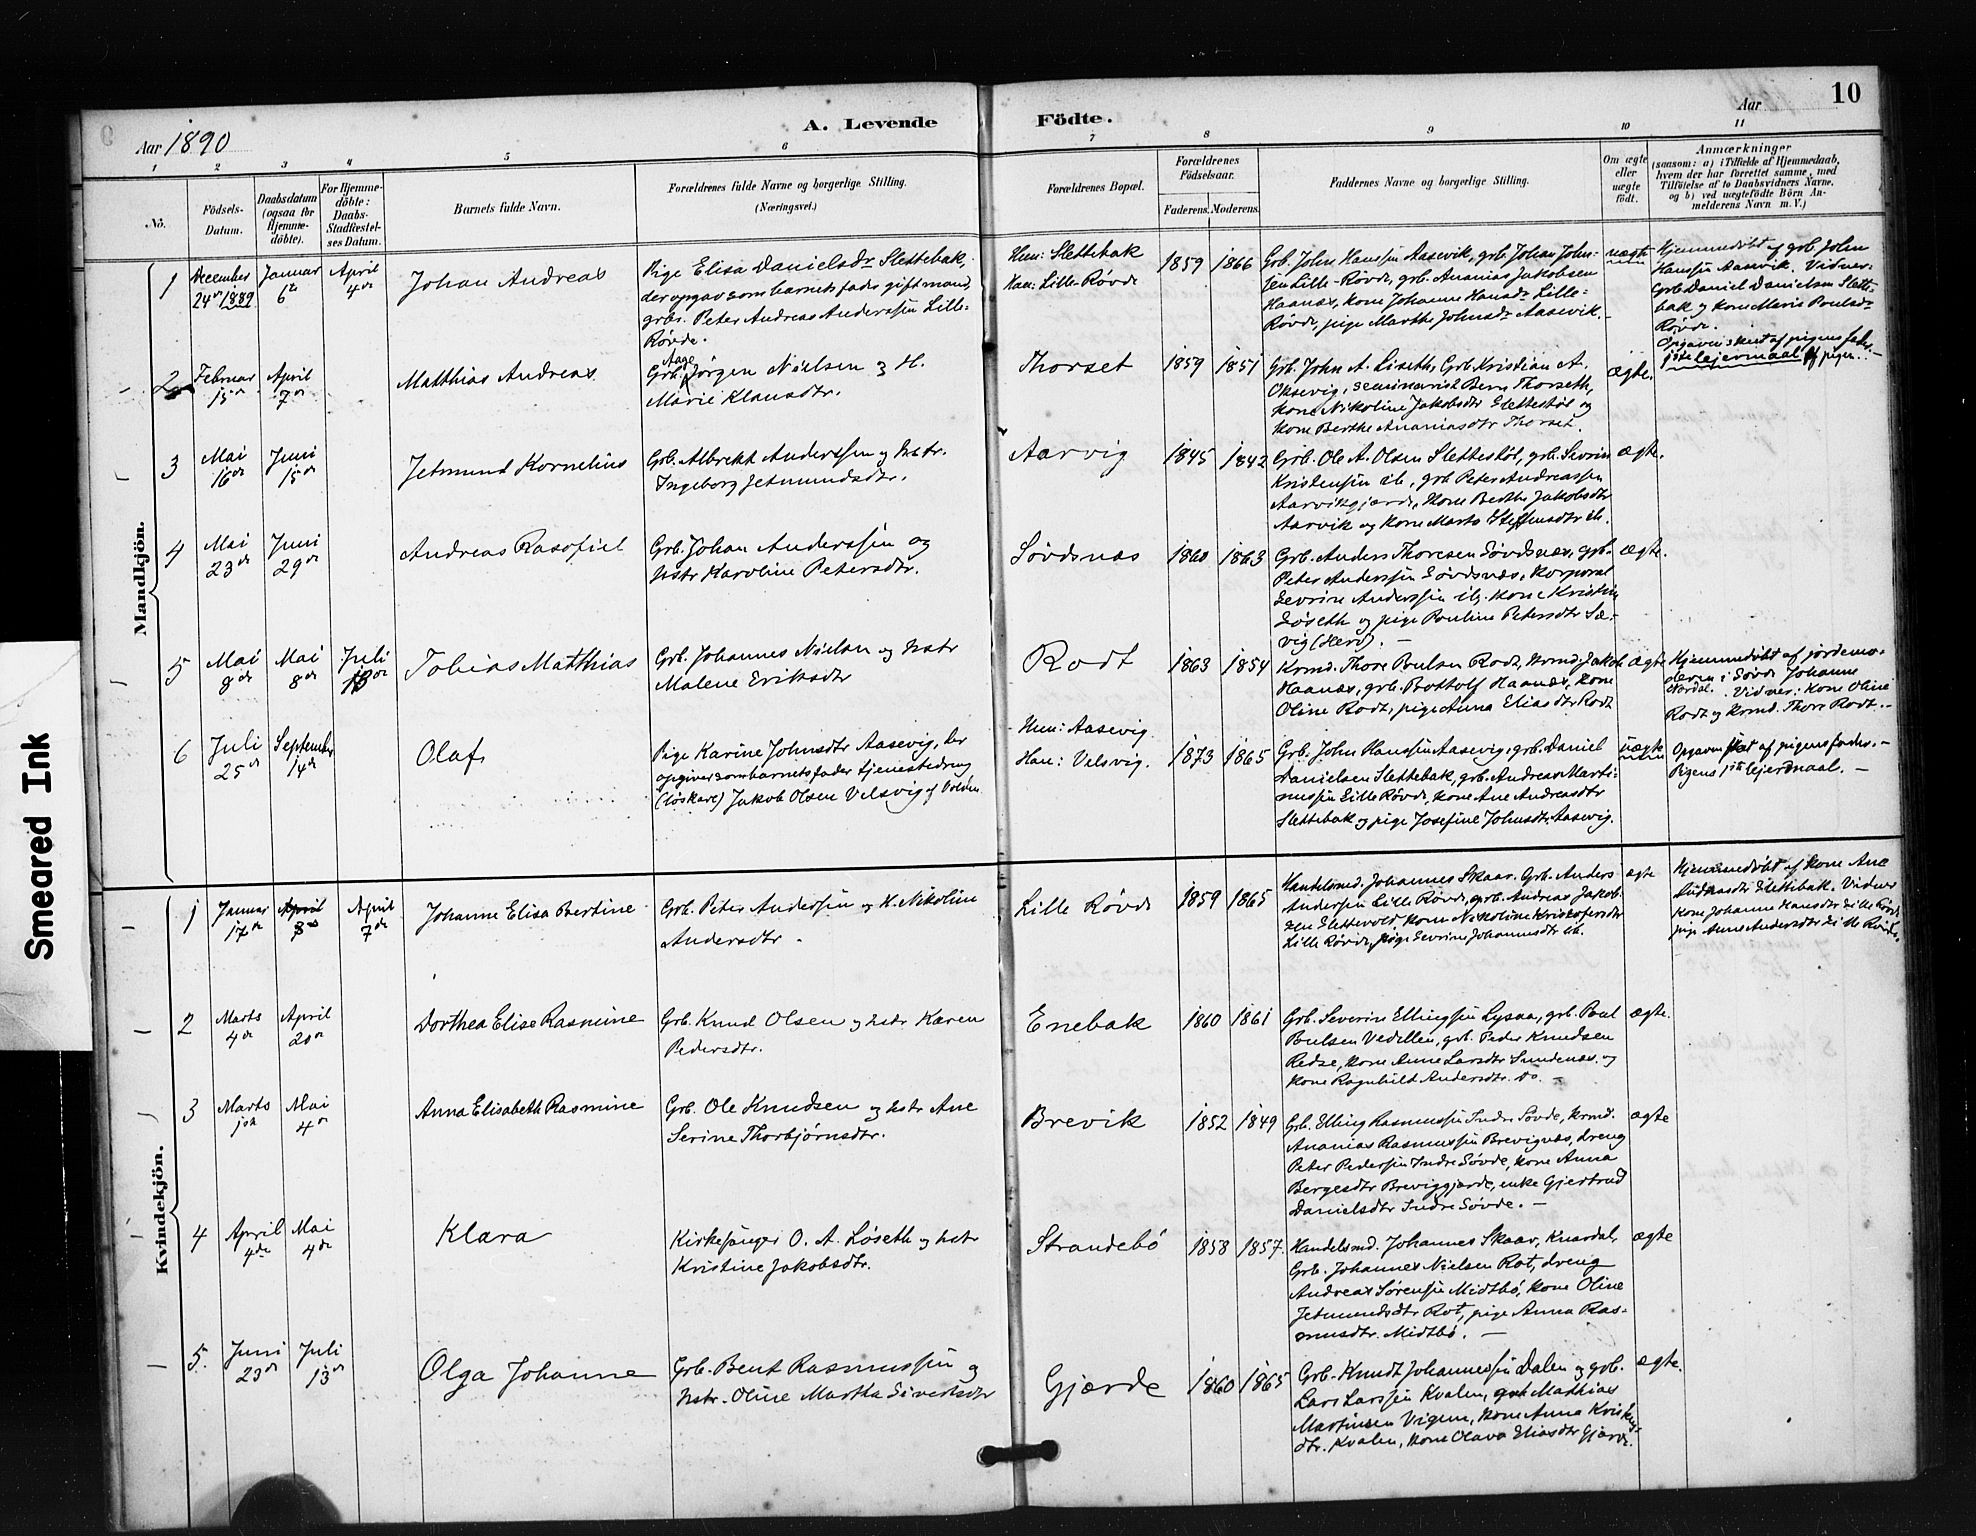 10
Aar 1890
A. Levende
Födte.
Aar
1 2 3 4 5 6 7 8 9 10 11
No.
Födsels-
Datum.
Daabsdatum
(ogsaa for
Hjemme-
döbte).
For Hjemme-
döbte:
Daabs-
Stadfæstel-
ses Datum.
Barnets fulde Navn.
Forældrenes fulde Navne og borgerlige Stilling.
(Næringsvei.)
Forældrenes Bopæl.
Forældrenes
Födselsaar.
Faderens. Moderens.
Faddernes Navne og borgerlige Stilling.
Om ægte
eller
uægte
födt.
Anmærkninger
(saasom: a) i Tilfælde af Hjemmedaab,
hvem der har forrettet samme, med
Tilföielse af to Daabsvidners Navne,
og b) ved uægtefödte Börn An-
melderens Navn m. V.)
Mandkjön.
1
December
24de 1889.
Januar
6te
April
4de
Johan Andreas
Pige Elisa Danielsdr Slettebak,
der opgav som barnets fader gift mand,
grbr. Peter Andreas Anderssen Lille-
Røvde.
Hun: Slettebak
Han: Lille-Røvde
1859 1866
Grb. John Hanssen Aasevik, grb. Johan John-
sen Lille-Røvde, grb. Ananias Jakobsen
Haanæs, kone Johanne Hansdr Lille-
Røvde, pige Marthe Johnsdr Aasevik.
uægte
Hjemmedøbt af grb. John
Hanssen Aasevik. Vidner:
Grb. Daniel Danielsen Slette-
bak og kone Maris Poulsdr
Røvde.
Opgaven skeet af pigens fader.
1ste lejermaal af pigen.
2
Februar
15de
April
7de
Matthias Andreas
Grb. Aage Jørgen Nielsen og H.
Marie Klausdtr.
Thorset
1859 1851
Grb. John A. Liseth, Grb. Kristian A.
Oksevig, seminarist Bern Thorseth,
kone Nikoline Jakobsdtr Slettestøl og
kone Berthe Ananiasdtr Thorset.
ægte.
3
Mai
16de
Juni
15de
Jetmund Kornelius
Grb. Albrekt Anderssen og hstr.
Ingeborg Jetmundsdtr.
Aarvig
1845 1842
Grb. Ole A. Olsen Slettestøl, grb. Sevrin
Kristensen ib., grb. Peter Andreassen
Aarvikgjærde, kone Berthe Jakobsdtr
Aarvik og kone Marte Steffensdtr ib.
ægte.
4
Mai
23de
Juni
29de
Andreas Rasofiel
Grb. Johan Anderssen og
hstr Karoline Petersdtr.
Søvdsnæs
1860 1863
Grb. Anders Thoresen Søvdsnæs, grb.
Peter Anderssen Søvdsnæs, Korporal
Sevrine Anderssen ib, kone Kristin
Løseth og pige Pouline Petersdtr Sæ-
vig (Herø). —
ægte.
5
Mai
8de
Mai
8de
Juli
13de
Tobias Matthias
Grb. Johannes Nielsen og hstr
Malene Eriksdtr
Rodt
1863 1854
Krmd. Thore Poulsen Rodt, krmd. Jakob
Haanæs, grb. Bottolf Haanæs, kone
Oline Rodt, pige Anna Eliasdtr Rodt
ægte
Hjemmedøbt af jordemo-
deren i Søvde Johanne
Nordal. Vidner: kone Oline
Rodt og krmd. Thore Rodt. -
6
Juli
25de
September
14de
Olaf
Pige Karine Johnsdtr Aasevig, der
opgiver som barnets fader tjenestedreng
(løskarl) Jakob Olsen Velsvig af Volden
Hun: Aasevig.
Han: Velsvig.
1873 1865
Grb. John Hanssen Aasevig, grb. Daniel
Danielsen Slettebak, grb. Andreas Marti-
nussen Lille Røvde, kone Ane Andreasdtr
Slettebak og pige Josefine Johnsdtr. Aasevig.
uægte
Opgaven skeet af pigens fader. -
Pigens 1ste lejermaal. —
Kvindekjön.
1
Januar
17de
April
April
7de
Johanne Elisa Bertine
Grb. Peter Anderssen og H. Nikoline
Andersdtr.
Lille Røvde
1859 1865
Handelsmd. Johannes Skaar, Grb. Anders
Andersen Lille Røvde, grb. Andreas Jakob-
sen Slettevold, kone Nikoline Kristofersdtr
Lille Røvde, pige Sevrine Johannesdtr ib.
ægte
Hjemmedøbt af kone Ane
Slettebak. Vidner
kone Johanne Hansdtr Lille Røvde
pige Anne Andersdtr Lille Røvde.
2
Marts
4de
April
20de
Dorthea Elise Rasmine
Grb. Knud Olsen og hstr Karen
Pedersdtr.
Enebak
1860 1861
Grb. Severin Ellingsen Lysaa, grb. Poul
Poulsen Vedellen, grb. Peder Knudsen
Redse, kone Anne Larsdtr Sundenæs og
kone Ragnhild Andersdtr. do. —
ægte.
3
Marts
Mai
4de
Anna Elisabeth Rasmine
Grb. Ole Knudsen og hstr Ane
Serine Thorbjørnsdtr.
Brevik
1852 1849
Grb. Elling Rasmussen Indre Søvde, krmd.
Ananias Rasmussen Brevignæs, dreng
Peter Pedersen Indre Søvde, kone Anna
Bergesdtr Breviggjærde, enke Gjertrud
Danielsdtr Indre Søvde. —
ægte
4
April
4de
Mai
4de
Klara
Kirkesanger O. A. Løseth og hstr
Kristine Jakobsdtr.
Strandebø
1858 1857.
Handelsmd. Johannes Skaar, Knardal,
Grb. Johannes Nielsen Rot, dreng
Andreas Sørensen Midtbø, kone Oline
Jetmundsdtr Rot, pige Anna Ras-
musdtr. Midtbø. —
ægte
5.
Juni
23de
Juli
13de
Olga Johanne
Grb. Bent Rasmussen og
hstr. Oline Martha Sivertsdtr
Gjærde
1860 1865
Grb. Knudt Johannessen Dalen og grb.
Lars Larssen Kvalen, grb Mathias
Martinsen Vigen, kone Anna
dtr. Kvalen, kone Olava Eliasdtr Gjærde.
ægte.
Smeared Ink